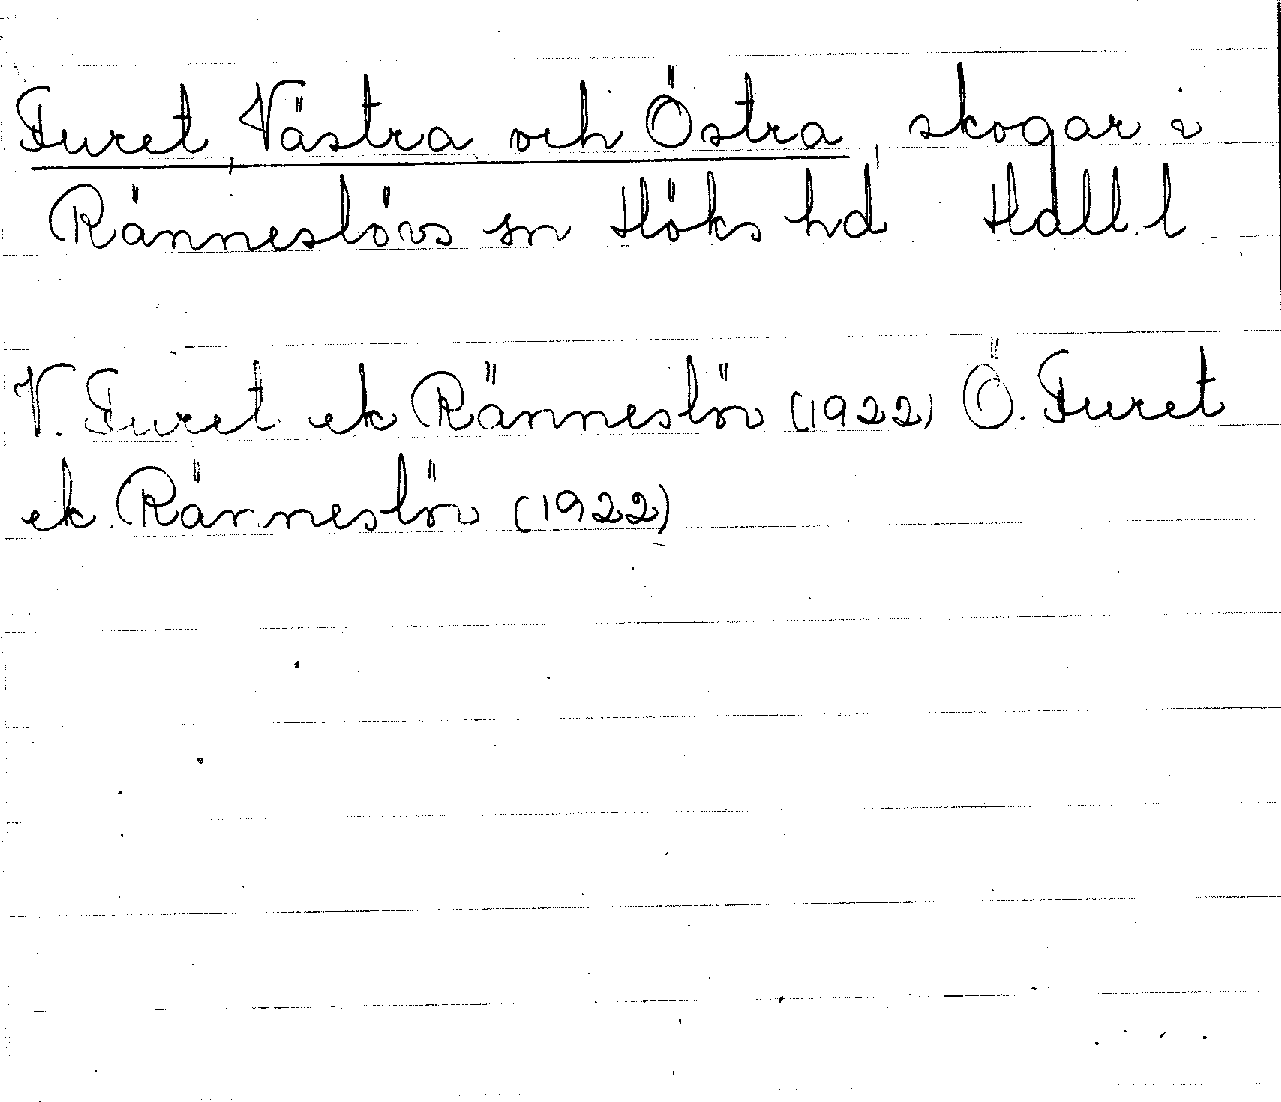 Furet, Västra och Östra, skogar i
Ränneslövs sn Höks hd Hall. l
V. Furet ek Ränneslöv (1922) Ö. Furet
ek Ränneslöv (1922)